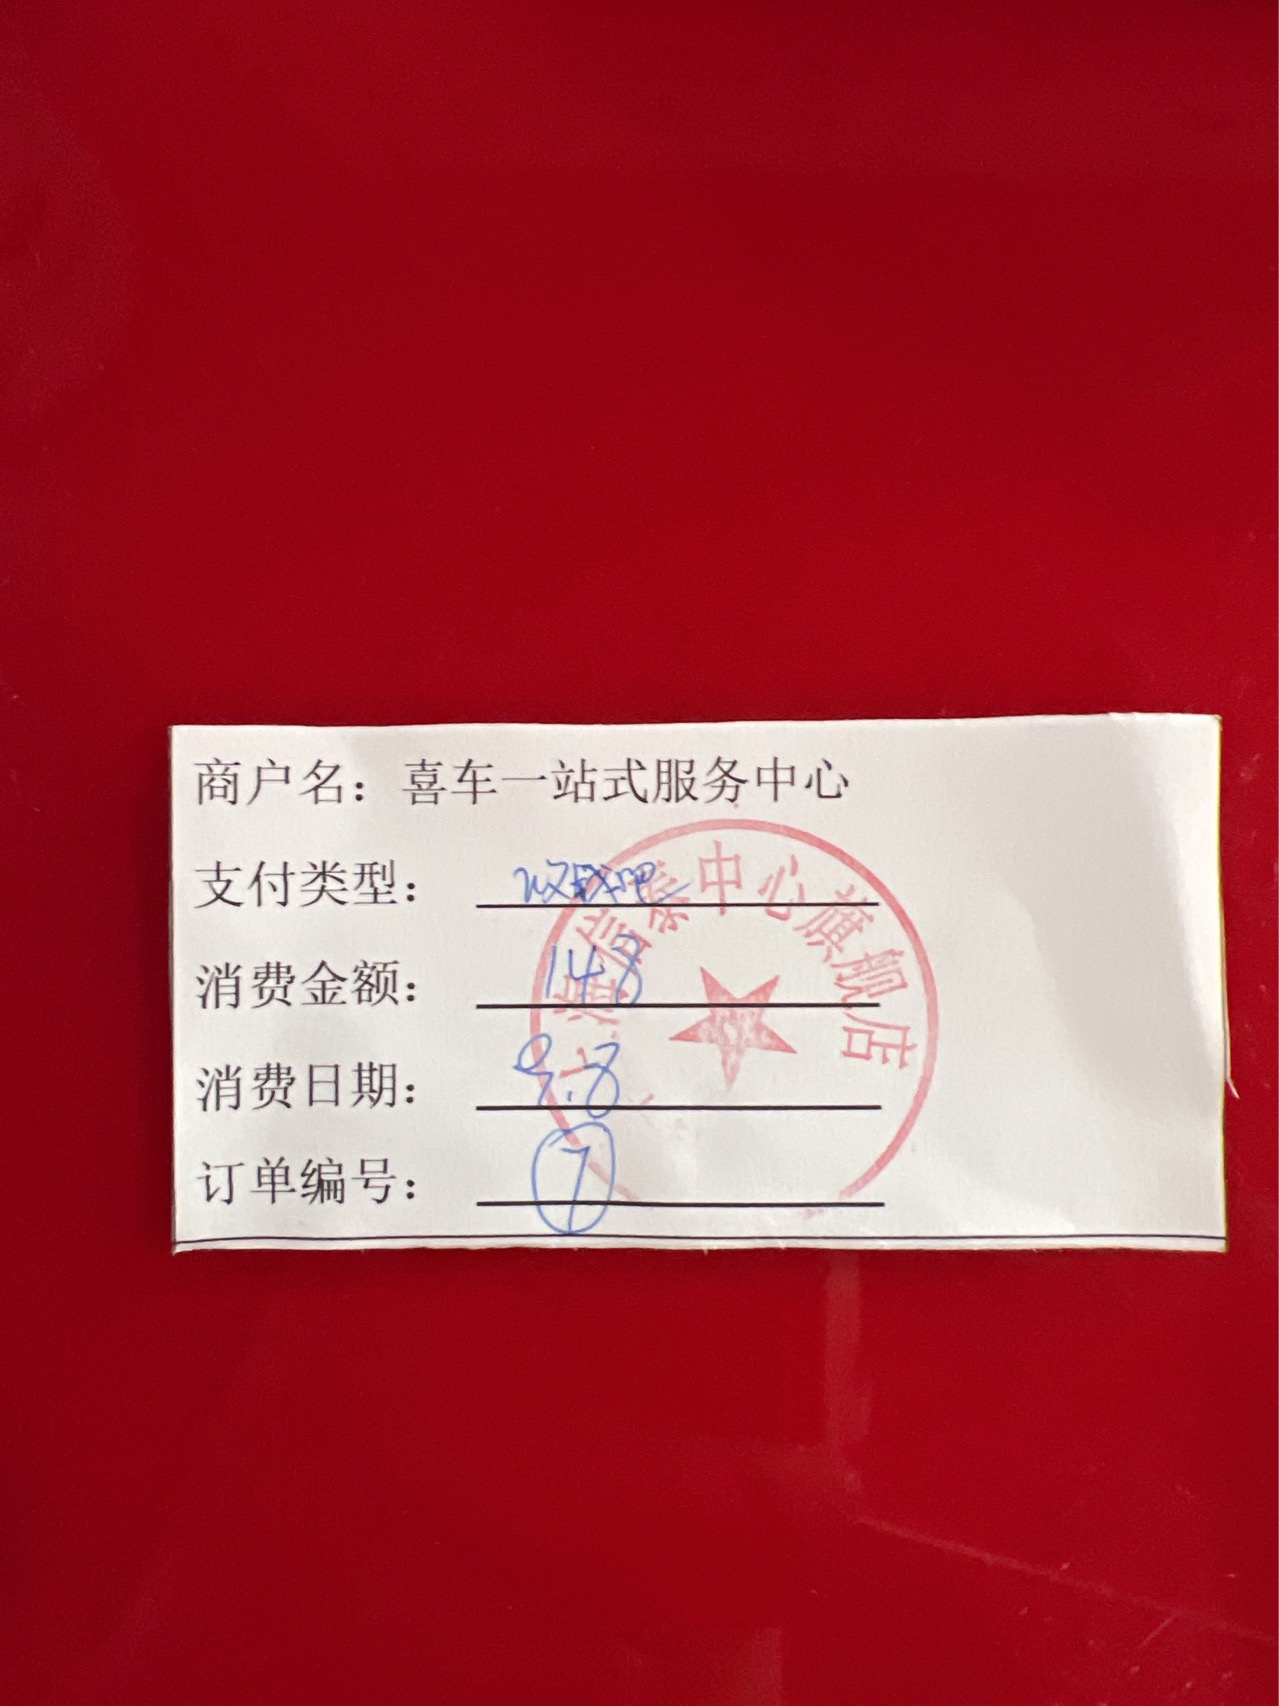 商户名：喜车一站式服务中心
支付类型：
消费金额：148
消费日期：9.8
订单编号：⑦
上海信泰中心旗舰店